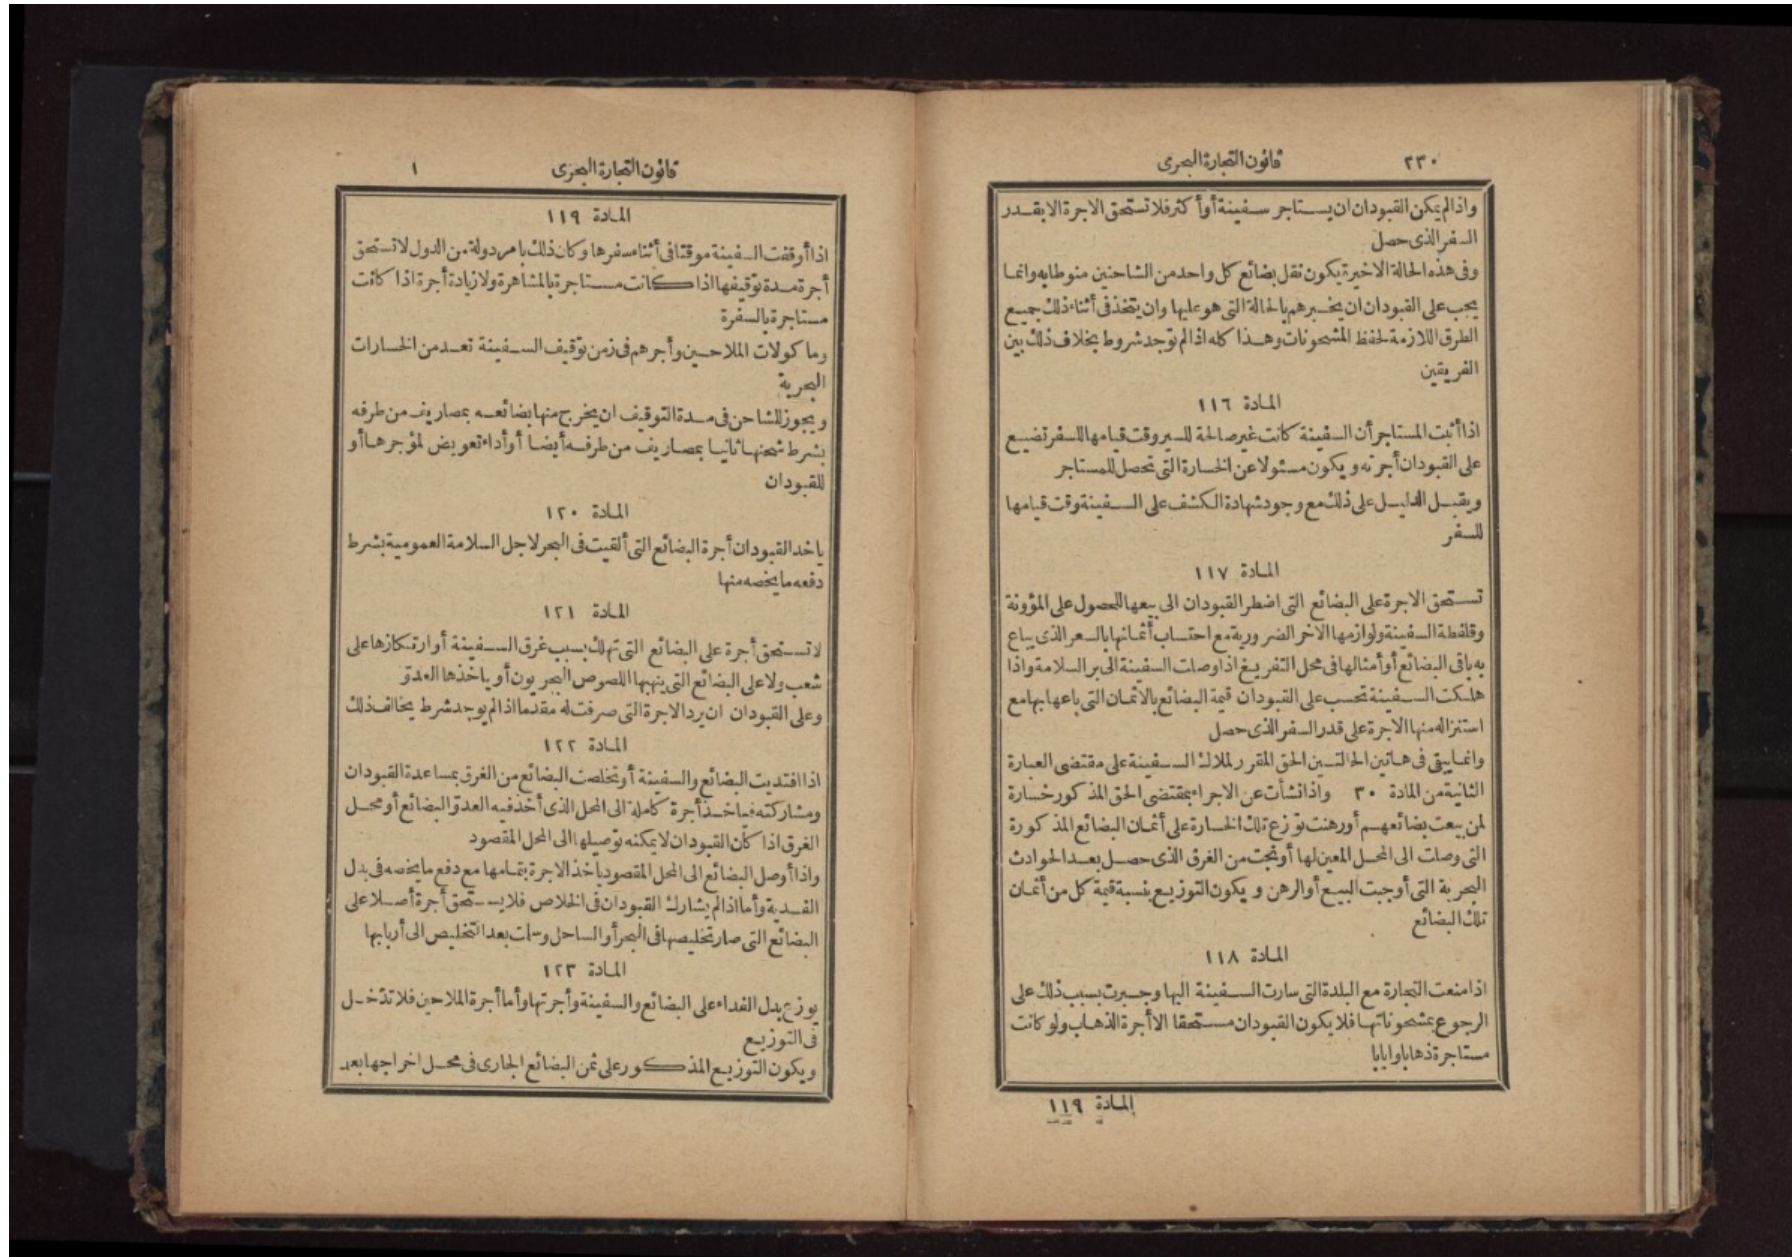 ٢٣٠
قانون التجارة البحرى
واذا لم يمكن القبودان ان يستاجر سفينة أو أكثر فلا تستحق الاجرة الا بقدر
السفر الذى حصل
وفى هذه الحالة الاخيرة يكون نقل بضائع كل واحد من الشاحنين منوطا به وانما
يجب على القبودان ان يخبرهم بالحالة التى هو عليها وان يتخذ فى أثناء ذلك جميع
الطرق اللازمة لحفظ المشحونات وهذا كله اذا لم توجد شروط بخلاف ذلك بين
الفريقين
المادة ١١٦
اذا أثبت المستاجر أن السفينة كانت غير صالحة للسير وقت قيامها للسفر تضيع
على القبودان أجرته ويكون مسئولا عن الخسارة التى تحصل للمستاجر
ويقبل الدليل على ذلك مع وجود شهادة الكشف على السفينة وقت قيامها
للسفر
المادة ١١٧
تستحق الاجرة على البضائع التى اضطر القبودان الى بيعها للحصول على المؤونة
وقلفطة السفينة ولوازمها الاخر الضرورية مع احتساب أثمانها بالسعر الذى يباع
به باقى البضائع أو أمثالها فى محل التفريغ اذا وصلت السفينة الى بر السلامة واذا
هلكت السفينة تحسب على القبودان قيمة البضائع بالاثمان التى باعها بها مع
استنزاله منها الاجرة على قدر السفر الذى حصل
وانما يبقى فى هاتين الحالتين الحق المقرر لملاك السفينة على مقتضى العبارة
الثانية من المادة ٣٠ واذا نشأت عن الاجراء بمقتضى الحق المذكور خسارة
لمن بيعت بضائعهم أو رهنت توزع تلك الخسارة على أثمان البضائع المذكورة
التى وصلت الى المحل المعين لها أو نجت من الغرق الذى حصل بعد الحوادث
البحرية التى أوجبت البيع أو الرهن ويكون التوزيع بنسبة قيمة كل من أثمان
تلك البضائع
المادة ١١٨
اذا منعت التجارة مع البلدة التى سارت السفينة اليها وجبرت بسبب ذلك على
الرجوع بمشحوناتها فلا يكون القبودان مستحقا الا أجرة الذهاب ولو كانت
مستاجرة ذهابا وايابا
المادة ١١٩
قانون التجارة البحرى
١
المادة ١١٩
اذا أوقفت السفينة موقتا فى أثناء سفرها وكان ذلك بامر دولة من الدول لا تستحق
أجرة مدة توقيفها اذا كانت مستاجرة بالمشاهرة ولا زيادة أجرة اذا كانت
مستاجرة بالسفرة
وما كولات الملاحين وأجرهم فى زمن توقيف السفينة تعد من الخسارات
البحرية
ويجوز للشاحن فى مدة التوقيف ان يخرج منها بضائعه بمصاريف من طرفه
بشرط شحنها ثانيا بمصاريف من طرفه أيضا أو أداء تعويض لمؤجرها أو
للقبودان
المادة ١٢٠
ياخد القبودان أجرة البضائع التى ألقيت فى البحر لاجل السلامة العمومية بشرط
دفعه ما يخصه منها
المادة ١٢١
لا تستحق أجرة على البضائع التى تهلك بسبب غرق السفينة أو ارتكازها على
شعب ولا على البضائع التى ينهبها اللصوص البحريون أو ياخذها العدوّ
وعلى القبودان ان يرد الاجرة التى صرفت له مقدما اذا لم يوجد شرط يخالف ذلك
المادة ١٢٢
اذا افتديت البضائع والسفينة أو تخلصت البضائع من الغرق بمساعدة القبودان
ومشاركته فياخذ أجرة كاملة الى المحل الذى أخذ فيه العدوّ البضائع أو محل
الغرق اذا كان القبودان لا يمكنه توصيلها الى المحل المقصود
واذا أوصل البضائع الى المحل المقصود ياخذ الاجرة بتمامها مع دفع ما يخصه فى بدل
الفدية وأما اذا لم يشارك القبودان فى الخلاص فلا يستحق أجرة أصلا على
البضائع التى صار تخليصها فى البحر أو الساحل وسلمت بعد التخليص الى أربابها
المادة ١٢٣
يوزع بدل الفداء على البضائع والسفينة وأجرتها وأما أجرة الملاحين فلا تدخل
فى التوزيع
ويكون التوزيع المذكور على ثمن البضائع الجارى فى محل اخراجها بعد